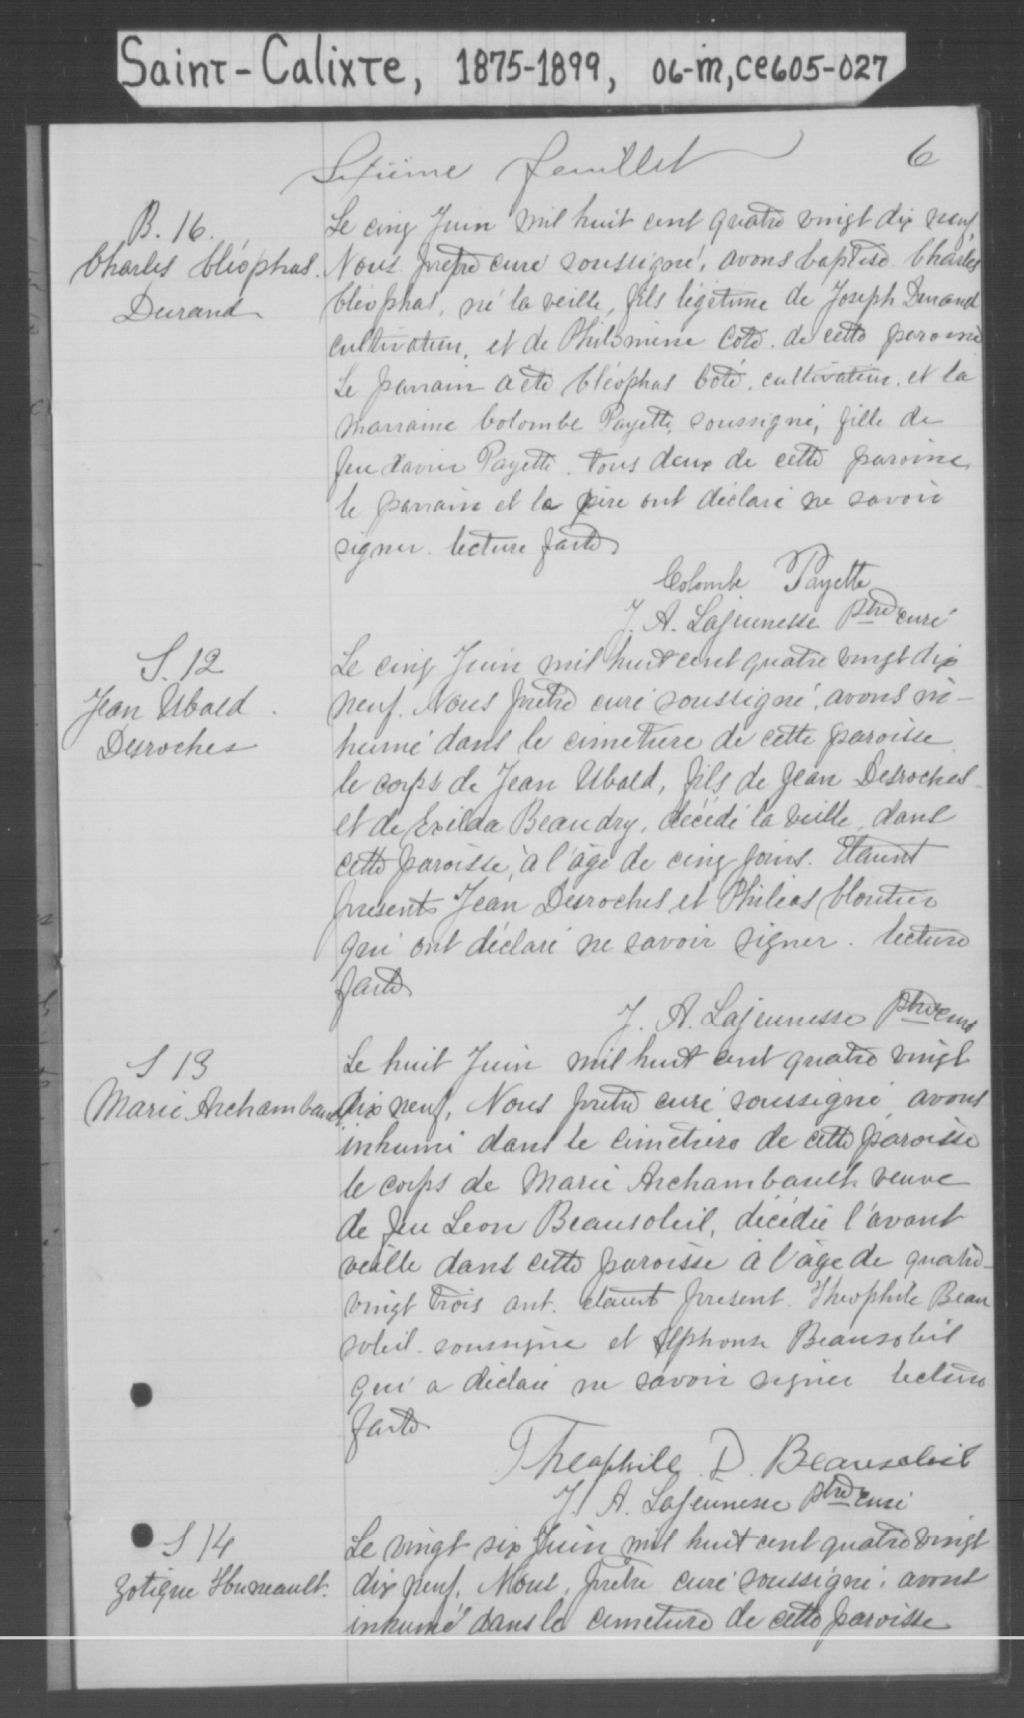 Saint-Calixte, 1875-1899, 06-m, CE605-027
Sixième feuillet 6
B. 16.
Charles Cléophas
Durand
Le cinq Juin mil huit cent quatre vingt dix neuf,
Nous prêtre curé soussigné, avons baptisé Charles
Cléophas, né la veille, fils légitime de Joseph Durand
cultivateur, et de Philomène Coté de cette paroisse
Le parrain a été Cléophas Coté, cultivateur, et la
marraine Colombe Payette, soussigné, fille de
feu Xavier Payette. tous deux de cette paroisse,
le parrain et le père ont déclaré ne savoir
signer. lecture faite
Colombe Payette
J. A. Lajeunesse Ptre curé
S. 12
Jean Ubald
Desroches
Le cinq Juin mil huit cent quatre vingt dix
neuf. Nous prêtre curé soussigné, avons in-
humé dans le cimetière de cette paroisse
le corps de Jean Ubald, fils de Jean Desroches
et de Exilda Beaudry, décédé la veille, dans
cette paroisse, à l'âge de cinq jours. Etaient
présents Jean Desroches et Philéas Cloutier
qui ont déclaré ne savoir signer. lecture
faite
J. A. Lajeunesse Ptre curé
S 13
Marie Archambault
Le huit Juin mil huit cent quatre vingt
dix neuf, Nous prêtre curé soussigné avons
inhumé dans le cimetière de cette paroisse
le corps de Marie Archambault veuve
de feu Leon Beausoleil, décédée l'avant
veille dans cette paroisse à l'âge de quatre-
vingt trois ans. étaient présent Théophile Beau
soleil soussigné et Alphonse Beausoleil
qui a déclaré ne savoir signer lecture
faite.
Theophile D. Beausoleil
J. A. Lajeunesse Ptre curé
S 14
Zotique Huneault.
Le vingt six Juin mil huit cent quatre vingt
dix neuf, Nous, prêtre curé soussigné, avons
inhumé dans le cimetière de cette paroisse